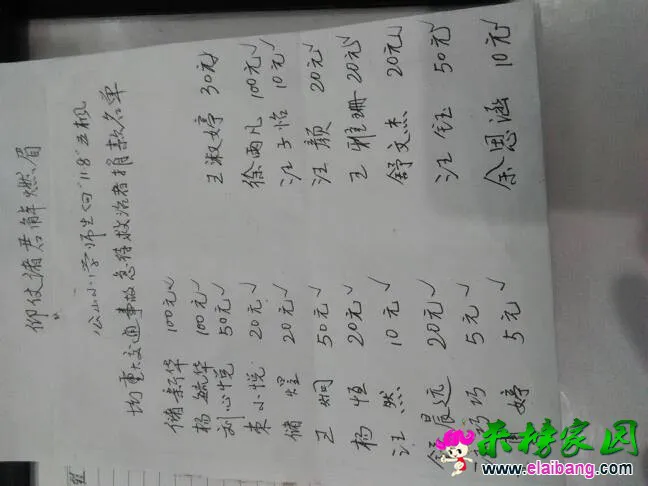 仰仗诸君解燃眉
公山小学师生向"11·8"五机
均重大交通事故急待救治者捐款名单
储新华 100元√
杨毓华 100元√
刘心悦 50元√
束小悦 20元√
储煜 20元√
王炯 50元√
杨恒 20元√
汪然 10元√
舒晨远 20元√
巧巧 5元√
婷 5元√
王淑婷 30元√
徐雨凡 100元√
汪子怡 10元√
汪颜 20元√
王雅珊 20元√
舒文杰 20元√
汪钰 50元√
余思涵 10元√
来榜家园
www.elaibang.com